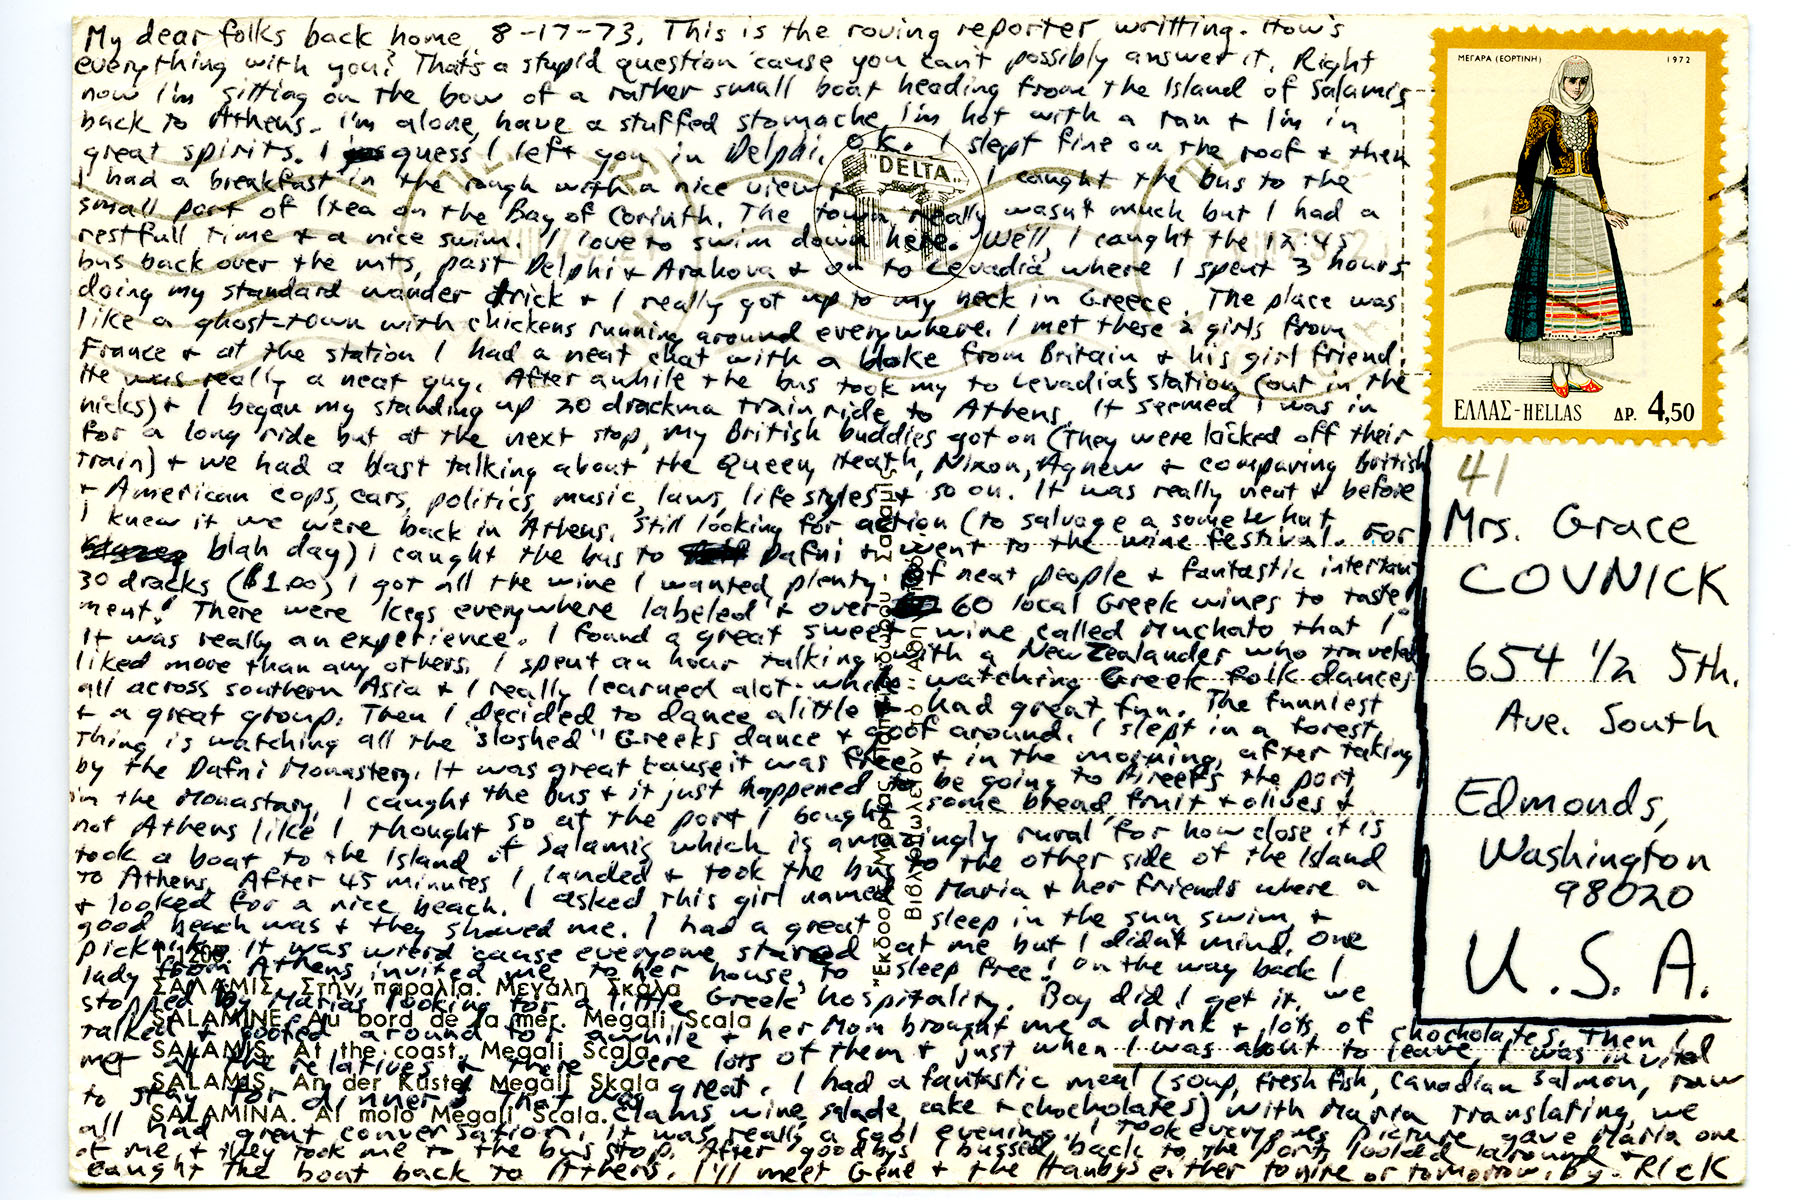 My dear folks back home, 8-17-73. This is the roving reporter writting. How's
everything with you? That's a stupid question cause you can't possibly answer it. Right
now I'm sitting on the bow of a rather small boat heading from the Island of Salamis
back to Athens. I'm alone, have a stuffed stomache, I'm hot with a tan + I'm in
great spirits. I guess I left you in Delphi. O.K. I slept fine on the roof + then
I had a breakfast in the rough with a nice view + I caught the bus to the
small port of Itea on the Bay of Corinth. The town really wasn't much but I had a
restfull time + a nice swim. I love to swim down here. Well, I caught the 12:45
bus back over the mts, past Delphi + Arahova + on to Levadia where I spent 3 hours
doing my standard wander trick + I really got up to my neck in Greece. The place was
like a ghost-town with chickens running around everywhere. I met these 2 girls from
France + at the station I had a neat chat with a bloke from Britain + his girl friend.
He was really a neat guy. After awhile the bus took my to Levadia's station (out in the
nicks) + I began my standing up 20 drackma train ride to Athens. It seemed I was in
for a long ride but at the next stop, my British buddies got on (they were kicked off their
train) + we had a blast talking about the Queen, Heath, Nixon, Agnew + comparing British
+ American cops, cars, politics, music, laws, life styles + so on. It was really neat + before
I knew it we were back in Athens. Still looking for action (to salvage a somewhat
blah day) I caught the bus to Dafni + went to the wine festival. For
30 dracks ($1.00) I got all the wine I wanted, plenty of neat people + fantastic intertain
ment! There were kegs everywhere labeled + over 60 local Greek wines to taste!
It was really an experience. I found a great sweet wine called Muchato that I
liked more than any others. I spent an hour talking with a New Zealander who traveled
all across southern Asia + I really learned alot while watching Greek folk dances
+ a great group. Then I decided to dance a little + had great fun. The funniest
thing is watching all the "sloshed" Greeks dance + goof around. I slept in a forest
by the Dafni Monastery. It was great cause it was free + in the morning, after taking
in the Monastary, I caught the bus + it just happened to be going to Pireefs the port,
not Athens like I thought so at the port I bought some bread fruit + olives +
took a boat to the Island of Salamis which is amazingly rural for how close it is
to Athens. After 45 minutes I landed + took the bus to the other side of the Island
+ looked for a nice beach. I asked this girl named Maria + her friends where a
good beach was + they showed me. I had a great sleep in the sun, swim, +
picknik. It was wierd cause everyone stared at me but I didn't mind. One
lady from Athens invited me to her house, to sleep free! On the way back I
stopped by Maria's looking for a little Greek hospitality. Boy did I get it. We
talked + goofed around for awhile + her Mom brought me a drink + lots of chocholates. Then I
met all the relatives + there were lots of them + just when I was about to leave, I was invited
to stay for dinner. That was great. I had a fantastic meal (soup, fresh fish, Canadian salmon, raw
clams, wine, salade, cake + chocholates) with Maria translating, we
all had great conversation. It was really a cool evening. I took everyones picture, gave Maria one
of me, + they took me to the bus stop. After goodbys I bussed back to the port, looked around +
caught the boat back to Athens. I'll meet Gene + the Hanbys either tonite or tomorrow. by- RICK
"DELTA"
ΜΕΓΑΡΑ (ΕΟΡΤΙΝΗ) 1972
ΕΛΛΑΣ-HELLAS ΔΡ. 4,50
41
Mrs. Grace
COVNICK
654 1/2 5th.
Ave. South
Edmonds,
Washington
98020
U.S.A.
1.1200.
ΣΑΛΑΜΙΣ. Στὴν παραλία. Μεγάλη Σκάλα
SALAMINE. Au bord de la mer. Megali Scala
SALAMIS. At the coast. Megali Scala
SALAMIS. An der Küste. Megali Skala
SALAMINA. Al molo Megali Scala.